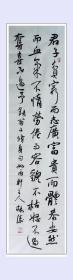 君子貧窮而志廣富貴而體恭安燕
而血氣不惰勞倦而容貌不枯怒不過
奪喜不過予